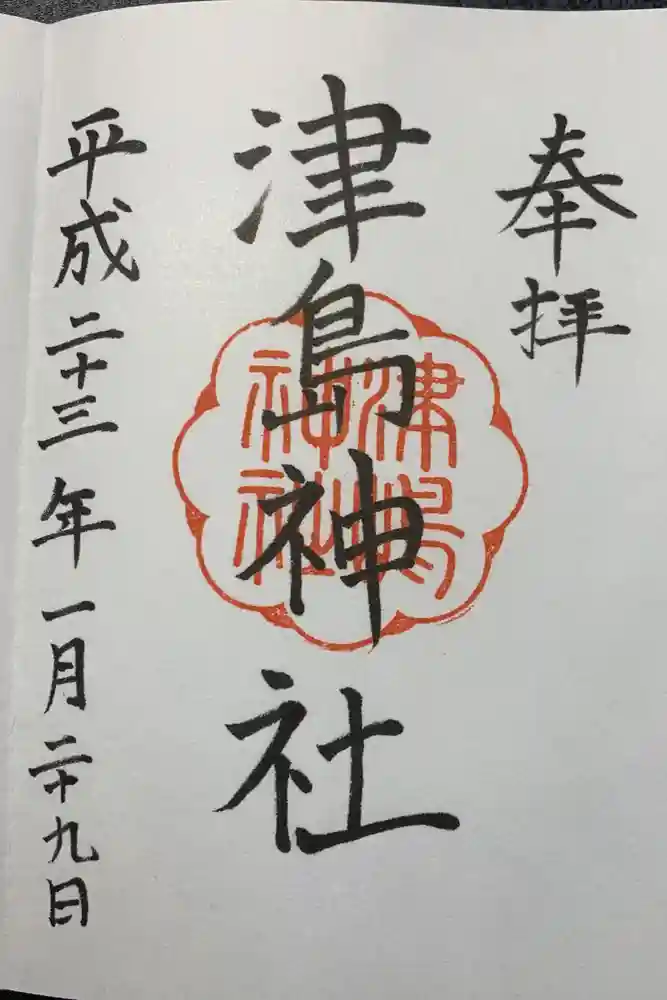 奉拝
津島神社
津嶋神社
平成二十三年一月二十九日